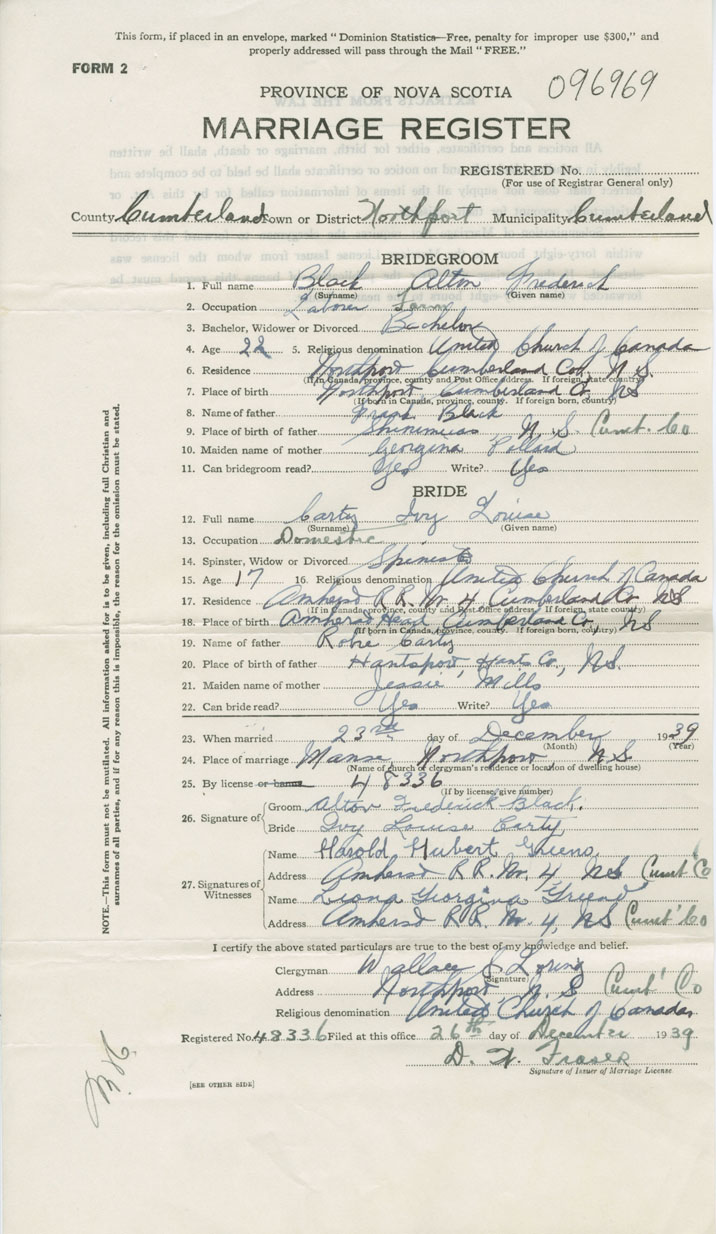 This form, if placed in an envelope, marked "Dominion Statistics—Free, penalty for improper use $300," and
properly addressed will pass through the Mail "FREE."
FORM 2
PROVINCE OF NOVA SCOTIA 096969
MARRIAGE REGISTER
REGISTERED No.
(For use of Registrar General only)
County Cumberland Town or District Northport Municipality Cumberland
BRIDEGROOM
1. Full name Black Alton Frederick
(Surname) (Given name)
2. Occupation Laborer Farm
3. Bachelor, Widower or Divorced Bachelor
4. Age 22 5. Religious denomination United Church of Canada
6. Residence Northport Cumberland Co, N S.
(If in Canada, province, county and Post Office address. If foreign, state country)
7. Place of birth Northport, Cumberland Co, NS
(If born in Canada, province, county. If foreign born, country)
8. Name of father Frank Black
9. Place of birth of father Shinimicas N. S. Cumb. Co
10. Maiden name of mother Georgina Pollard
11. Can bridegroom read? Yes Write? Yes
BRIDE
12. Full name Carty Ivy Louise
(Surname) (Given name)
13. Occupation Domestic
14. Spinster, Widow or Divorced Spinster
15. Age 17 16. Religious denomination United Church of Canada
17. Residence Amherst R.R. No. 4 Cumberland Co NS
(If in Canada, province, county and Post Office address. If foreign, state country)
18. Place of birth Amherst Head Cumberland Co, NS
(If born in Canada, province, county. If foreign born, country)
19. Name of father Robie Carty
20. Place of birth of father Hantsport, Hants Co, NS.
21. Maiden name of mother Jessie Mills
22. Can bride read? Yes Write? Yes
23. When married 23rd day of December 1939
(Month) (Year)
24. Place of marriage Manse, Northport, N S
(Name of church or clergyman's residence or location of dwelling house)
25. By license or banns 48336
(If by license, give number)
26. Signature of Groom Alton Frederick Black.
Bride Ivy Louise Carty
27. Signatures of Witnesses Name Harold Hubert
Address Amherst R R. No. 4 NS Cumb' Co
Name Georgina
Address Amherst R R. No. 4, NS Cumb' Co
I certify the above stated particulars are true to the best of my knowledge and belief.
Clergyman Wallace
(Signature)
Address Northport N. S Cumb' Co
Religious denomination United Church of Canada
Registered No. 48336 Filed at this office 26th day of December 1939
D. Fraser
Signature of Issuer of Marriage License.
[SEE OTHER SIDE]
NOTE.—This form must not be mutilated. All information asked for is to be given, including full Christian and
surnames of all parties, and if for any reason this is impossible, the reason for the omission must be stated.